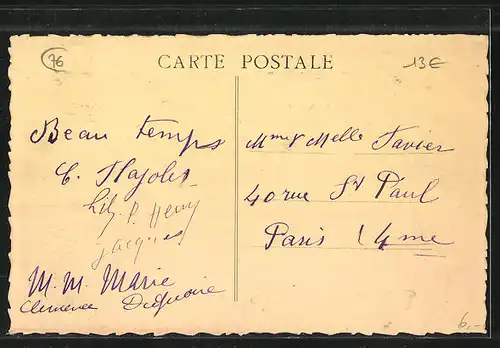 76
CARTE POSTALE
13€
Beau temps
Mme & Melle Favier
40 rue St Paul
Paris (4me
P. Henry
Jacques
M. M. Marie
Clemence
6,-